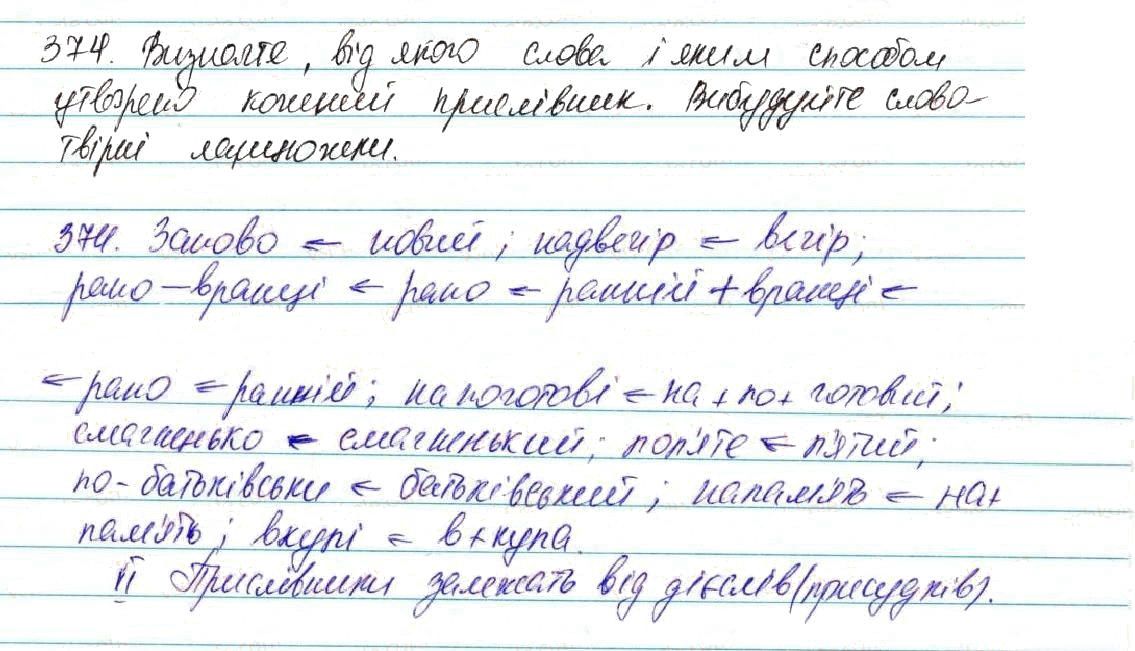 374. Визначте, від якого слова і яким способом
утворено кожений прислівник. Вибудуйте слово-
твірні ланцюжки.
374. Заново ← новий; надвечір ← вечір;
рано-вранці ← рано ← ранній + вранці ←
← рано ← ранній; напоготові ← на + по + готовий;
смачненько ← смачненький; поп'яте ← п'ятий;
по-батьківськи ← батьківський; напам'ять ← на +
пам'ять; вкупі ← в + купа.
II Прислівники залежать від дієслів (присудків).